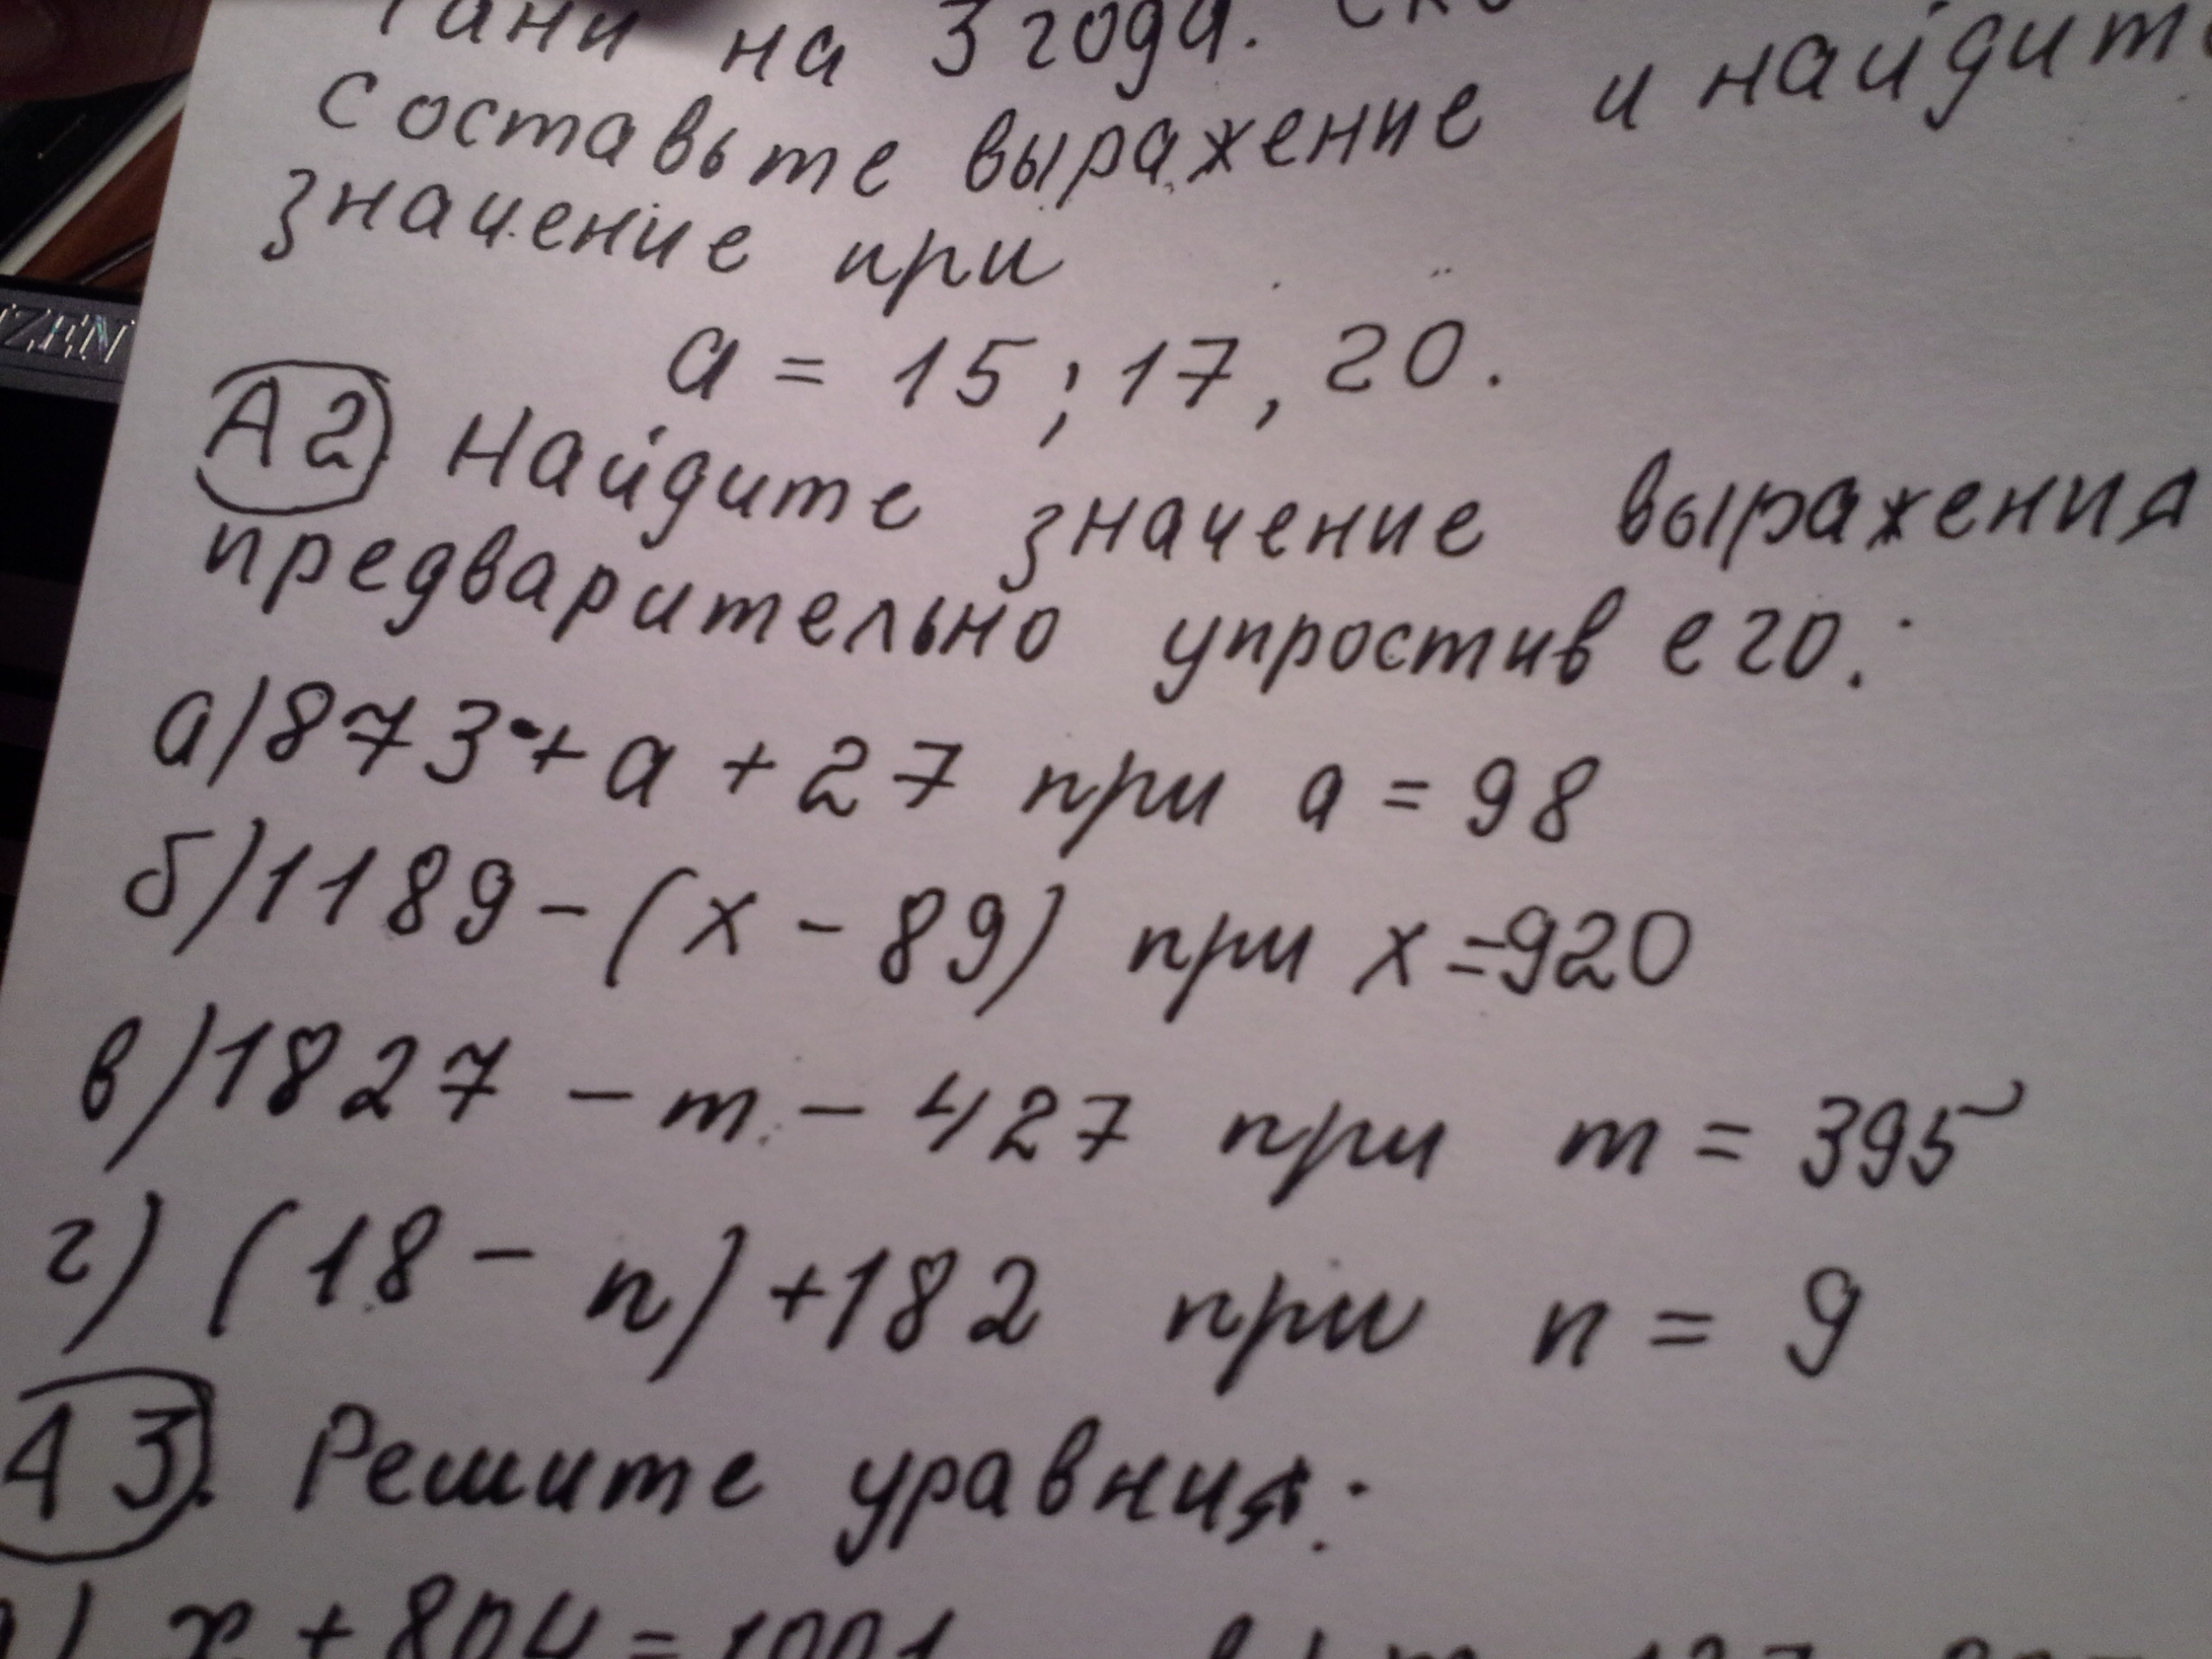 Тани на 3 года.
Составьте выражение и найдите
значение при
a = 15; 17, 20.
ZEN
А2 Найдите значение выражения
предварительно упростив его:
а) 873 + a + 27 при a = 98
б) 1189 - (x - 89) при x = 920
в) 1827 - m - 427 при m = 395
г) (18 - n) + 182 при n = 9
А3. Решите уравния:
x + 804 = 1001